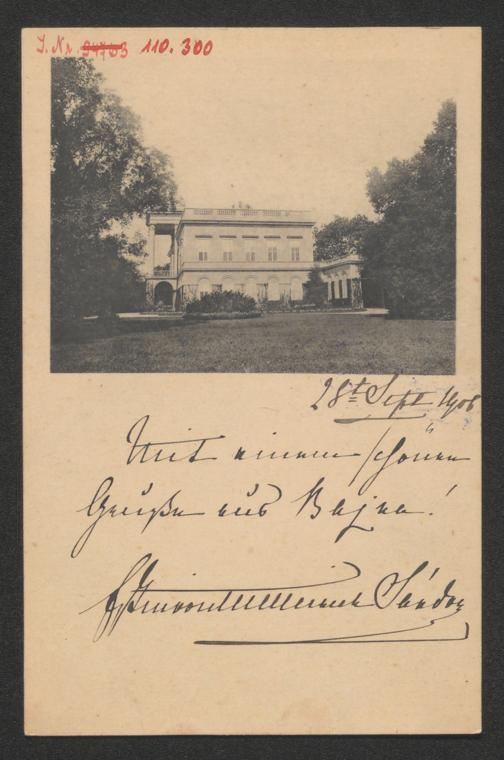 J. Nr. 110.300
28t Sept 1906
Mit einem schönen
Gruße aus Bajna!
Sándor